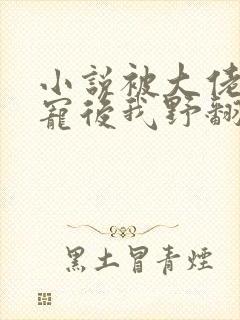 小說被大佬
寵後我野翻
黑土冒青煙